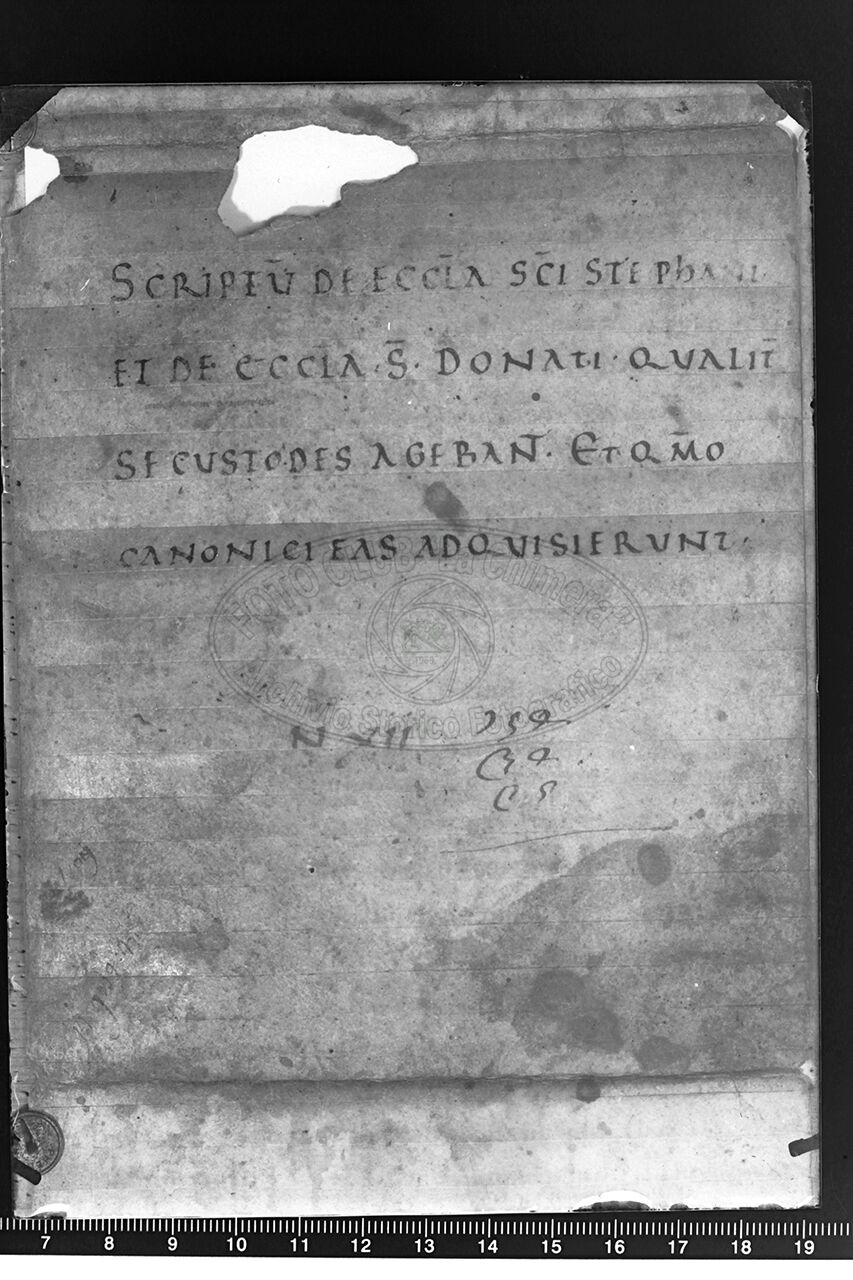 SCRIPTŪ DE ECCL̄A SC̄I STEPhANI
ET DE ECCL̄A · S̄ · DONATI · QVALIT̄
SE CVSTODES AGEBANT̄ · ET QM̄O
CANONICI EAS ADQVISIERVNT ·
FOTO CLUB "La Chimera"
Archivio Storico Fotografico
N VII
7 8 9 10 11 12 13 14 15 16 17 18 19